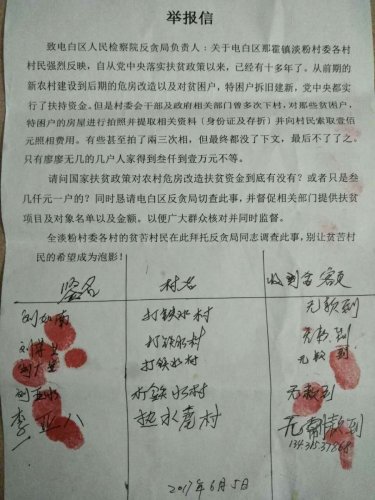 举报信
致电白区人民检察院反贪局负责人：关于电白区那霍镇淡粉村委各村
村民强烈反映，自从党中央落实扶贫政策以来，已经有十多年了。从前期的
新农村建设到后期的危房改造以及对贫困户，特困户拆旧建新，党中央都实
行了扶持资金。但是村委会干部及政府相关部门曾多次下村，对那些贫困户，
特困户的房屋进行拍照并提取相关资料（身份证及存折）并向村民索取壹佰
元照相费用。有些甚至拍了两三次相，但最终都没了下文，最后不了了之。
只有廖廖无几的几户人家得到叁仟到壹万元不等。
请问国家扶贫政策对农村危房改造扶贫资金到底有没有？或者只是叁
几仟元一户的？同时恳请电白区反贪局切查此事，并督促相关部门提供扶贫
项目及对象名单以及金额。以便广大群众核对并同时监督。
全淡粉村委各村的贫苦村民在此拜托反贪局同志调查此事，别让贫苦村
民的希望成为泡影！
签名 村名 收到金额
打铁水村 无款到
打铁水村 无款到
打铁水村 无款到
刘亚水 打铁水村 无款到
李亚八 热水窝村 无款到
2017年6月5日